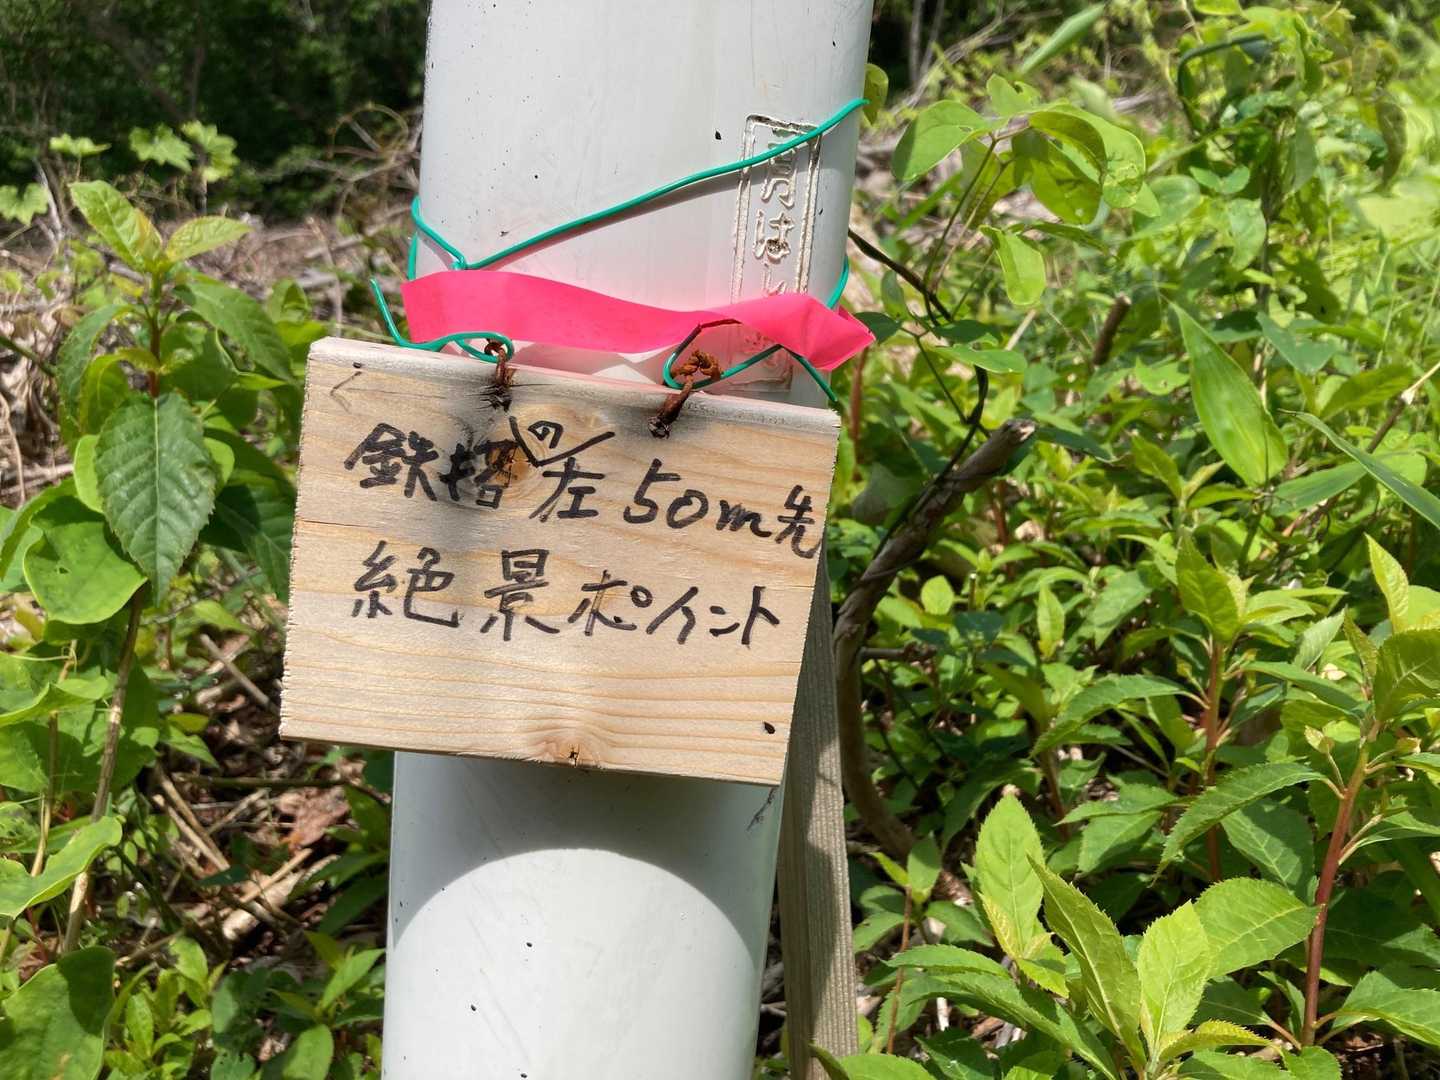 鉄塔の左50m先
絶景ポイント